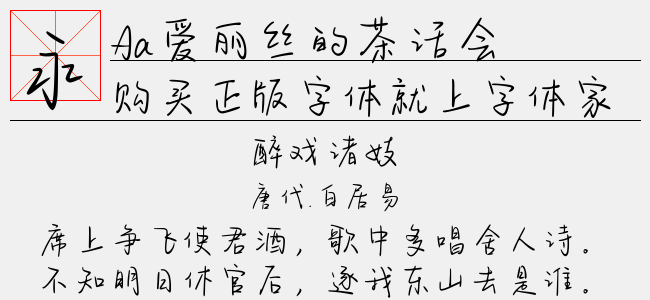 永
Aa爱丽丝的茶话会
购买正版字体就上字体家
醉戏诸妓
唐代.白居易
席上争飞使君酒，歌中多唱舍人诗。
不知明日休官后，逐我东山去是谁。